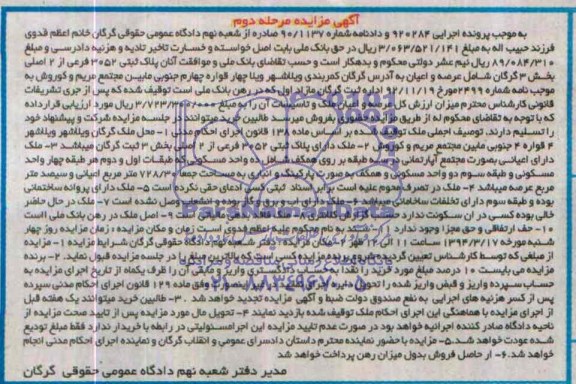 آگهی مزایده مرحله دوم
به موجب پرونده اجرایی ۹۲۰۲۸۴ و دادنامه شماره ۹۰/۱۱۳۷ صادره از شعبه نهم دادگاه عمومی حقوقی گرگان خانم اعظم قدوی
فرزند حبیب اله به مبلغ ۳/۰۶۳/۵۲۱/۱۴۱ ریال در حق بانک ملی بابت اصل خواسته و خسارت تاخیر تادیه و هزینه دادرسی و مبلغ
۸۹/۰۸۴/۳۱۰ ریال نیم عشر دولتی محکوم و بدهکار است و حسب تقاضای بانک ملی و موافقت آنان پلاک ثبتی ۳۰۵۲ فرعی از ۲ اصلی
بخش ۳ گرگان شامل عرصه و اعیان به آدرس گرگان کمربندی ویلاشهر ویلا چهار قواره چهارم جنوبی مابین مجتمع مریم و کوروش به
موجب نامه شماره ۲۴۹۹ مورخ ۹۲/۱۱/۱۹ ثبت گرگان ملک اول که در رهن بانک ملی است توقیف شده که پس از جری تشریفات
قانونی کارشناس محترم میزان ارزش کل عرصه و اعیان ملک و تاسیسات آن را به مبلغ ریال مورد ارزیابی قرارداده
که با توجه به تقاضای محکوم له از طریق مزایده حضوری بفروش میرسد طالبین می توانند در جلسه مزایده شرکت و پیشنهاد خود
را تسلیم دارند. توصیف اجمالی ملک توقیف شده بر اساس ماده ۱۳۸ قانون اجرای احکام مدنی ۱- محل ملک گرگان ویلاشهر ویلاشهر
۴ قواره ۴ جنوبی مابین مجتمع مریم و کوروش ۲- ملک دارای پلاک ثبتی ۳۰۵۲ فرعی از ۲ اصلی بخش ۳ ثبت گرگان میباشد ۳- ملک
دارای اعیانی بصورت مجتمع آپارتمانی سه طبقه بر روی همکف شامل ده واحد مسکونی که طبقات اول و دوم هر طبقه چهار واحد
مسکونی و طبقه سوم دو واحد مسکونی و همکف به صورت پارکینگ و انباری به مساحت جمعا ۷۲۸/۳ متر مربع اعیانی و سیصد متر
مربع عرصه میباشد ۴- ملک در تصرف محکوم علیه است برابر اسناد ثبتی کسی ادعای حقی نکرده است ۵- ملک دارای پروانه ساختمانی
بوده و طبقه سوم دارای تخلفات ساختمانی میباشد ۶- ملک دارای آب و برق و گاز بوده و انشعاب وصل نشده است ۷- ملک در حال حاضر
خالی بوده کسی در آن سکونت ندارد ۹- اصل ملک در رهن بانک ملی است
۱۰- حف ارتفاقی و حق مجزا وجود ندارد ۱۱- سند به نام محکوم علیه اعظم قدوی است. زمان و مکان مزایده : زمان مزایده روز چهار
شنبه مورخه ۱۳۹۴/۳/۱۷ ساعت ۱۱ الی ۱۲ ظهر ۲- مکان مزایده : دفتر شعبه نهم دادگاه حقوقی گرگان شرایط مزایده ۱- مزایده
از مبلغی که توسط کارشناس تعیین گردیده شروع و برنده مزایده کسی است که بالاترین مبلغ را در جلسه مزایده قبول نماید. ۲- برنده
مزایده می بایست ۱۰ درصد مبلغ مورد خرید را نقدا به حساب دادگستری واریز و مابقی آن را ظرف یکماه از تاریخ اجرای مزایده به
حساب سپرده واریز و قبض واریز شده را تحویل نماید وفق ماده ۱۲۹ قانون اجرای احکام مدنی سپرده
پس از کسر هزینه های اجرایی به نفع صندوق دولت ضبط و آگهی مزایده تجدید خواهد شد . ۳- طالبین خرید میتوانند یک هفته قبل
از اجرای مزایده با هماهنگی این اجرای احکام ملک توقیف شده بازدید نمایند ۴- تحویل مال مورد مزایده پس از تایید صحت مزایده از
ناحیه دادگاه صادر کننده اجرائیه خواهد بود در صورت عدم تایید مزایده این اجرا مسئولیتی در رابطه با خریدار ندارد فقط مبلغ تودیع
شده عودت خواهد شد.۵- مزایده با حضور نماینده محترم داستان دادسرای عمومی و انقلاب گرگان و نماینده اجرای احکام مدنی انجام
خواهد شد. ۶- از حاصل فروش بدول میزان رهن پرداخت خواهد شد
مدیر دفتر شعبه نهم دادگاه عمومی حقوقی گرگان
۰۲۱-۸۸۳۴۹۶۷۰-۵